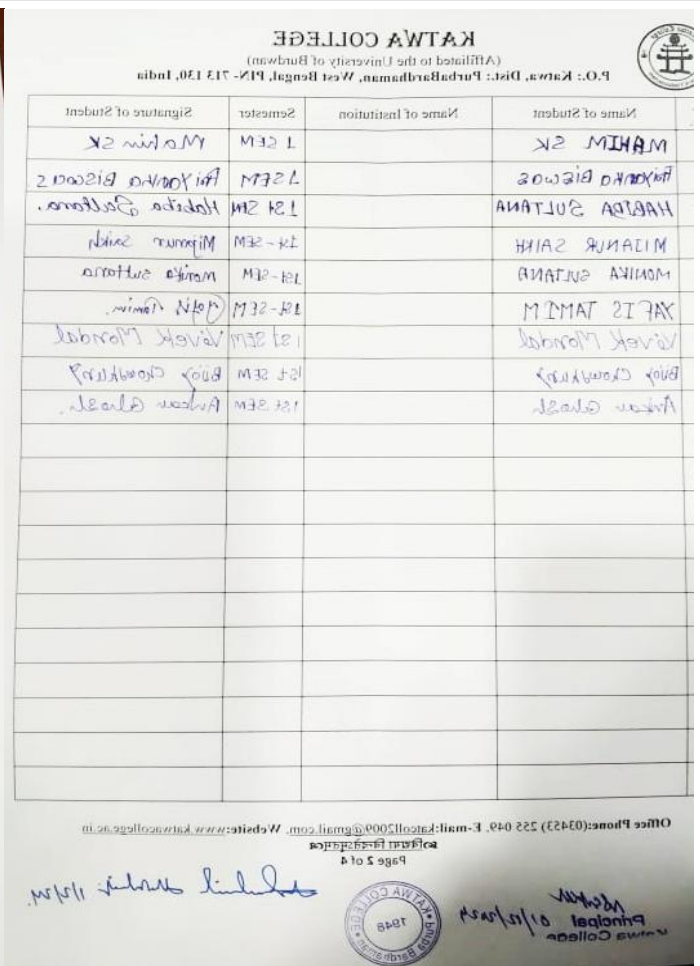 KATWA COLLEGE
(Affiliated to the University of Burdwan)
P.O.: Katwa, Dist.: PurbaBardhaman, West Bengal, PIN- 713 130, India
Name of Student Name of Institution Semester Signature of Student
MAHIM SK 1 SEM Mahim SK
Priyanka Biswas 1 SEM Priyanka Biswas
HABIBA SULTANA 1st SEM Habiba Sultana.
MIJANUR SAIKH 1st-SEM Mijanur Saikh
MONIKA SULTANA 1st-SEM Monika Sultana
YAFIS TAMIM 1st-SEM Yafis Tamim.
Vivek Mondal 1st SEM Vivek Mondal
Bijoy Chowdhury 1st SEM Bijoy Chowdhury
Ankan Ghosh 1st SEM Ankan Ghosh.
Office Phone:(03453) 255 049. E-mail:katcoll2009@gmail.com. Website:www.katwacollege.ac.in
Page 2 of 4
KATWA COLLEGE
1948
Purba Bardhaman
01/12/2024
Principal
Katwa College